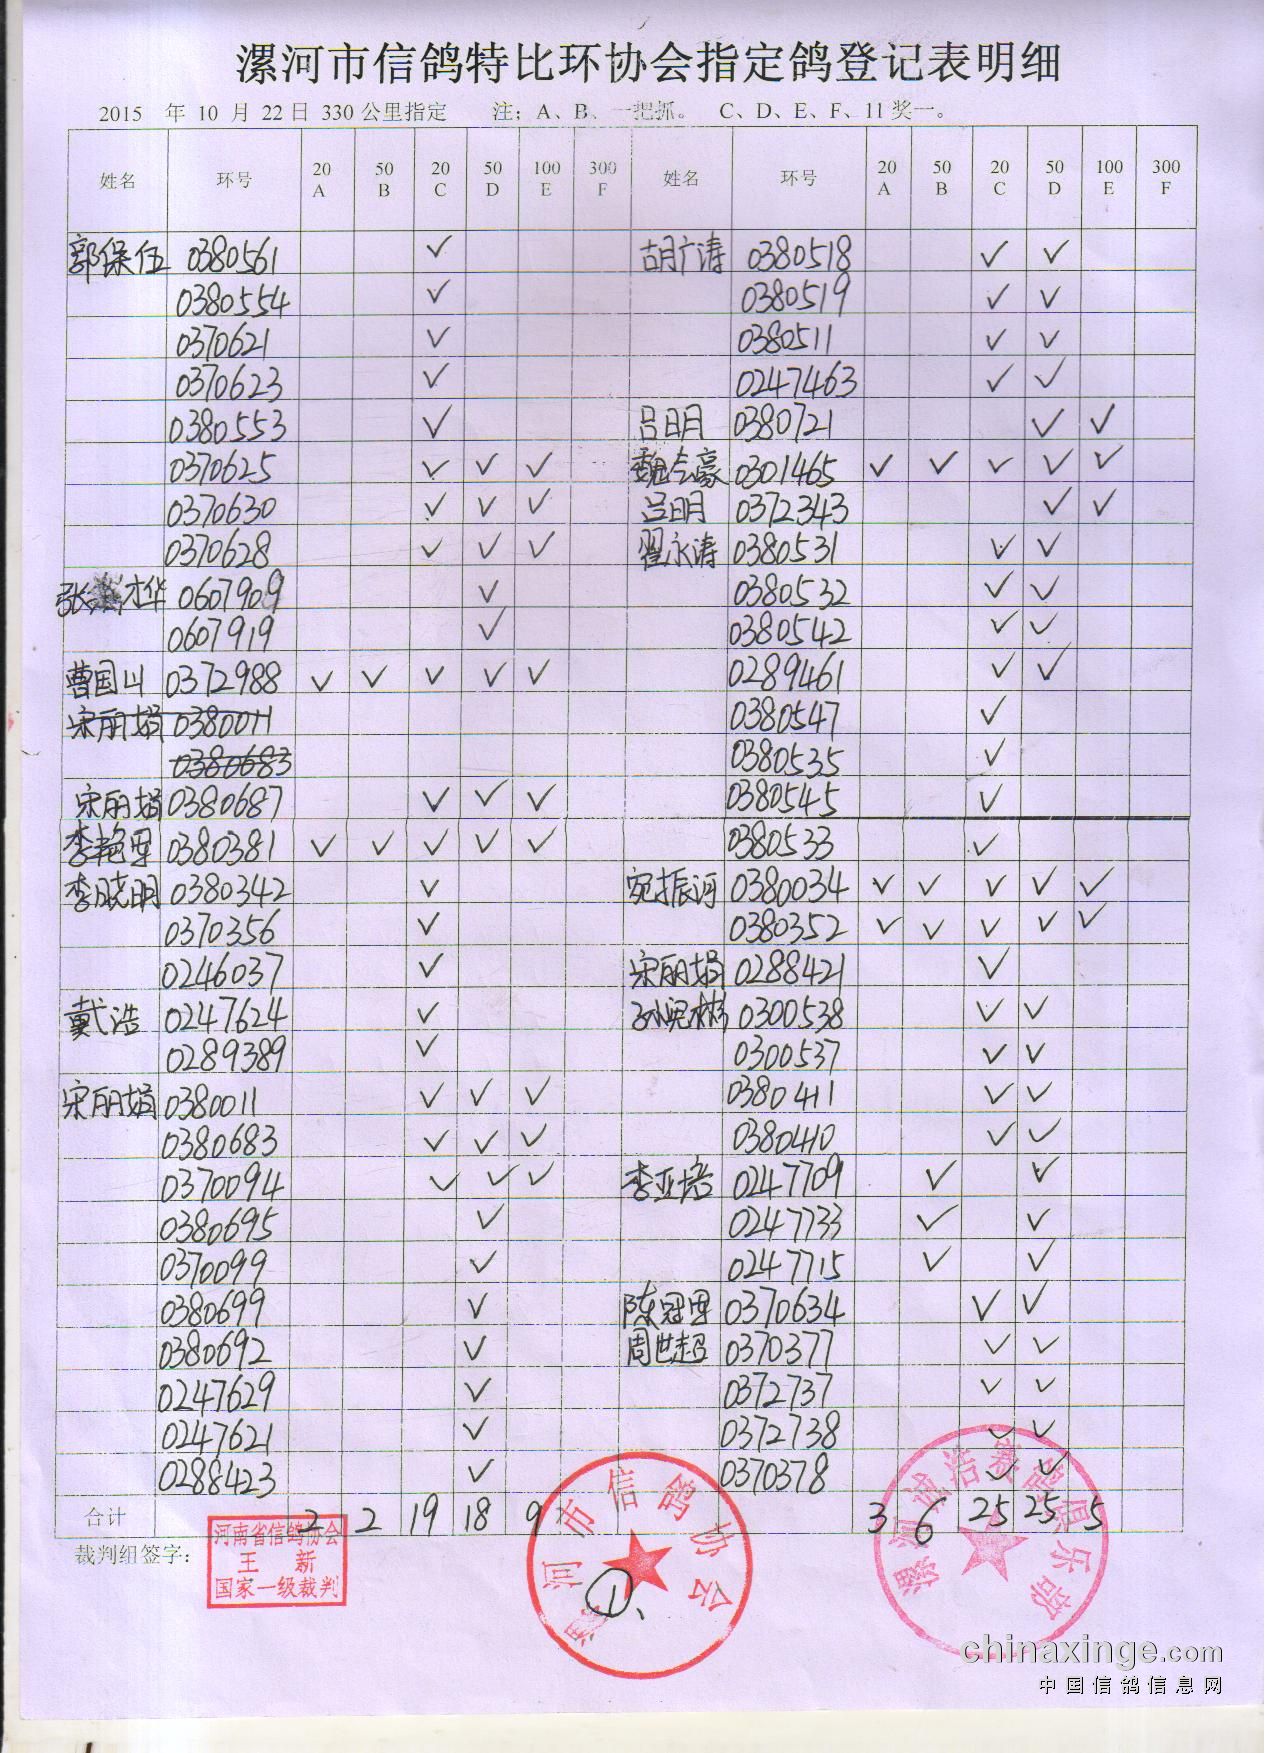 漯河市信鸽特比环协会指定鸽登记表明细
2015 年 10 月 22日 330公里指定 注；A、B、一把抓。 C、D、E、F、11奖一。
姓名 环号 20 A 50 B 20 C 50 D 100 E 300 F 姓名 环号 20 A 50 B 20 C 50 D 100 E 300 F
郭保伍 0380561 ✓ 胡广涛 0380518 ✓ ✓
0380554 ✓ 0380519 ✓ ✓
0370621 ✓ 0380511 ✓ ✓
0370623 ✓ 0247463 ✓ ✓
0380553 ✓ 吕明 0380721 ✓ ✓
0370625 ✓ ✓ ✓ 魏会豪 0301465 ✓ ✓ ✓ ✓ ✓
0370630 ✓ ✓ ✓ 吕明 0372343 ✓ ✓
0370628 ✓ ✓ ✓ 翟永涛 0380531 ✓ ✓
张 才华 0607909 ✓ 0380532 ✓ ✓
0607919 ✓ 0380542 ✓ ✓
曹国山 0372988 ✓ ✓ ✓ ✓ ✓ 0289461 ✓ ✓
宋丽娟 0380011 0380547 ✓
0380683 0380535 ✓
宋丽娟 0380687 ✓ ✓ ✓ 0380545 ✓
李艳军 0380381 ✓ ✓ ✓ ✓ ✓ 0380533 ✓
李晓明 0380342 ✓ 宛振河 0380034 ✓ ✓ ✓ ✓ ✓
0370356 ✓ 0380352 ✓ ✓ ✓ ✓ ✓
0246037 ✓ 宋丽娟 0288421 ✓
戴浩 0247624 ✓ 0300538 ✓ ✓
0289389 ✓ 0300537 ✓ ✓
宋丽娟 0380011 ✓ ✓ ✓ 0380411 ✓ ✓
0380683 ✓ ✓ ✓ 0380410 ✓ ✓
0370094 ✓ ✓ ✓ 李亚培 0247709 ✓ ✓
0380695 ✓ 0247733 ✓ ✓
0370099 ✓ 0247715 ✓ ✓
0380699 ✓ 陈冠军 0370634 ✓ ✓
0380692 ✓ 周世超 0370377 ✓ ✓
0247629 ✓ 0372737 ✓ ✓
0247621 ✓ 0372738 ✓ ✓
0288423 ✓ 0370378 ✓ ✓
合计 2 2 19 18 9 3 6 25 25 5
裁判组签字：
河南省信鸽协会
王 新
国家一级裁判
漯河市信鸽协会
①、
漯河诚浩赛鸽俱乐部
chinaxinge.com
中国信鸽信息网